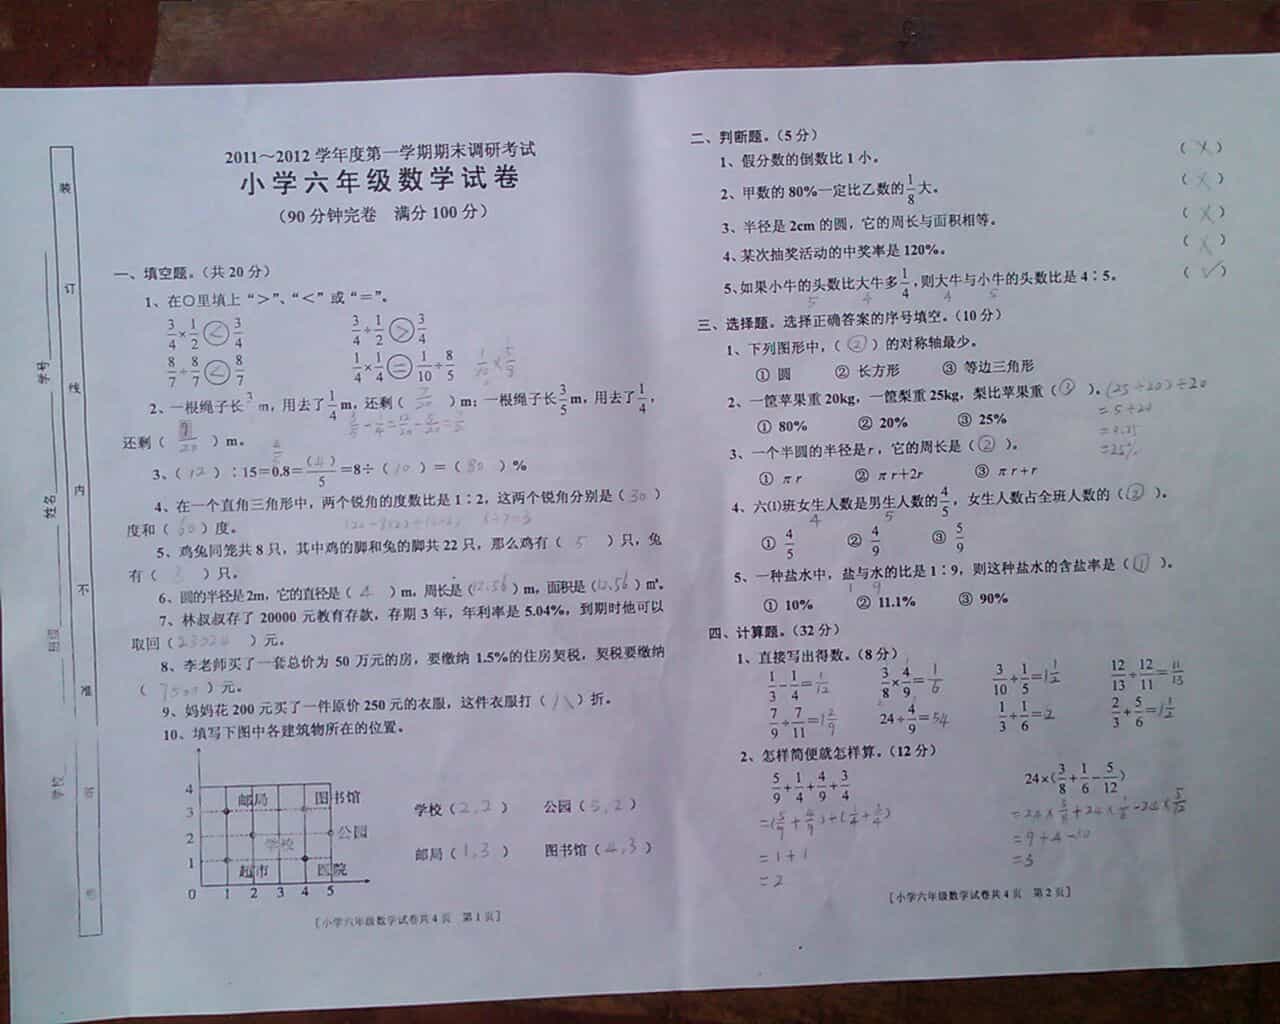 2011～2012 学年度第一学期期末调研考试
小学六年级数学试卷
（90 分钟完卷　满分 100 分）
一、填空题。（共 20 分）
1、在○里填上“>”、“<”或“=”。
3/4×1/2 < 3/4　3/4÷1/2 > 3/4
8/7÷8/7 < 8/7　1/4×1/4 = 1/10÷8/5
2、一根绳子长3/5 m，用去了1/4 m，还剩（　）m；一根绳子长3/5 m，用去了1/4，
还剩（9/20）m。
3、（12）：15=0.8=（4）/5=8÷（10）=（80）%
4、在一个直角三角形中，两个锐角的度数比是 1∶2，这两个锐角分别是（30）
度和（60）度。
5、鸡兔同笼共 8 只，其中鸡的脚和兔的脚共 22 只，那么鸡有（5）只，兔
有（3）只。
6、圆的半径是 2m，它的直径是（4）m，周长是（12.56）m，面积是（12.56）㎡。
7、林叔叔存了 20000 元教育存款，存期 3 年，年利率是 5.04%，到期时他可以
取回（23024）元。
8、李老师买了一套总价为 50 万元的房，要缴纳 1.5%的住房契税，契税要缴纳
（7500）元。
9、妈妈花 200 元买了一件原价 250 元的衣服，这件衣服打（八）折。
10、填写下图中各建筑物所在的位置。
4
3
2
1
0 1 2 3 4 5
邮局　图书馆
公园
学校
超市　医院
学校（2,2）　公园（5,2）
邮局（1,3）　图书馆（4,3）
[小学六年级数学试卷共 4 页　第 1 页]
装
订
线
内
不
准
学号
姓名
班级
学校
二、判断题。（5 分）
1、假分数的倒数比 1 小。（×）
2、甲数的 80%一定比乙数的1/8大。（×）
3、半径是 2cm 的圆，它的周长与面积相等。（×）
4、某次抽奖活动的中奖率是 120%。（×）
5、如果小牛的头数比大牛多1/4，则大牛与小牛的头数比是 4∶5。（✓）
5　4　4　5
三、选择题。选择正确答案的序号填空。（10 分）
1、下列图形中，（②）的对称轴最少。
① 圆　② 长方形　③ 等边三角形
2、一筐苹果重 20kg，一筐梨重 25kg，梨比苹果重（③）。
(25-20)÷20
=5÷20
=0.25
=25%
① 80%　② 20%　③ 25%
3、一个半圆的半径是 r，它的周长是（②）。
① πr　② πr+2r　③ πr+r
4、六⑴班女生人数是男生人数的4/5，女生人数占全班人数的（②）。
4　5
① 4/5　② 4/9　③ 5/9
5、一种盐水中，盐与水的比是 1∶9，则这种盐水的含盐率是（①）。
1　9
① 10%　② 11.1%　③ 90%
四、计算题。（32 分）
1、直接写出得数。（8 分）
1/3-1/4=1/12　3/8×4/9=1/6　3/10÷1/5=1 1/2　12/13÷12/11=11/13
7/9÷7/11=1 2/9　24÷4/9=54　1/3÷1/6=2　2/3+5/6=1 1/2
2、怎样简便就怎样算。（12 分）
5/9+1/4+4/9+3/4　24×(3/8+1/6-5/12)
=(5/9+4/9)+(1/4+3/4)　=24×3/8+24×1/6-24×5/12
=1+1　=9+4-10
=2　=3
[小学六年级数学试卷共 4 页　第 2 页]